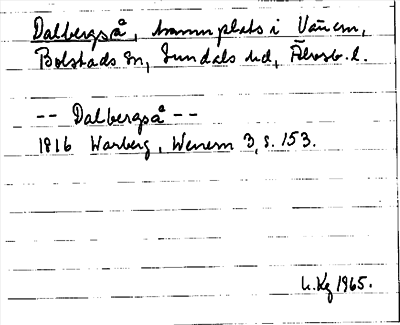 Dalbergså, hamnplats i Vänern,
Bolstads sn, Sundals hd, Älvsb. l.
-- Dalbergså --
1816 Warberg, Wenern 3, s. 153.
1965.